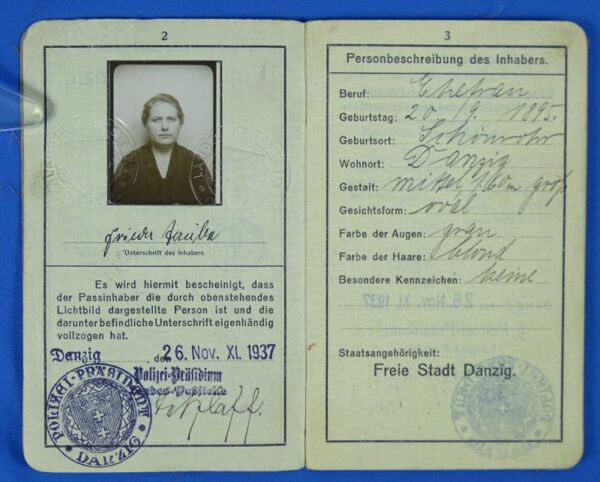 2
Frieda
Unterschrift des Inhabers.
Es wird hiermit bescheinigt, dass
der Passinhaber die durch obenstehendes
Lichtbild dargestellte Person ist und die
darunter befindliche Unterschrift eigenhändig
vollzogen hat.
Danzig, den 26. Nov. XI. 1937
Polizei-Präsidium
POLIZEI-PRÄSIDENT
DANZIG
3
Personbeschreibung des Inhabers.
Beruf: Ehefrau
Geburtstag: 20/9. 1895.
Geburtsort: Schönrohr
Wohnort: Danzig
Gestalt: mittel 1.60m groß
Gesichtsform: oval
Farbe der Augen: grau
Farbe der Haare: blond
Besondere Kennzeichen: keine
26. Nov. XI. 1937
Staatsangehörigkeit:
Freie Stadt Danzig.